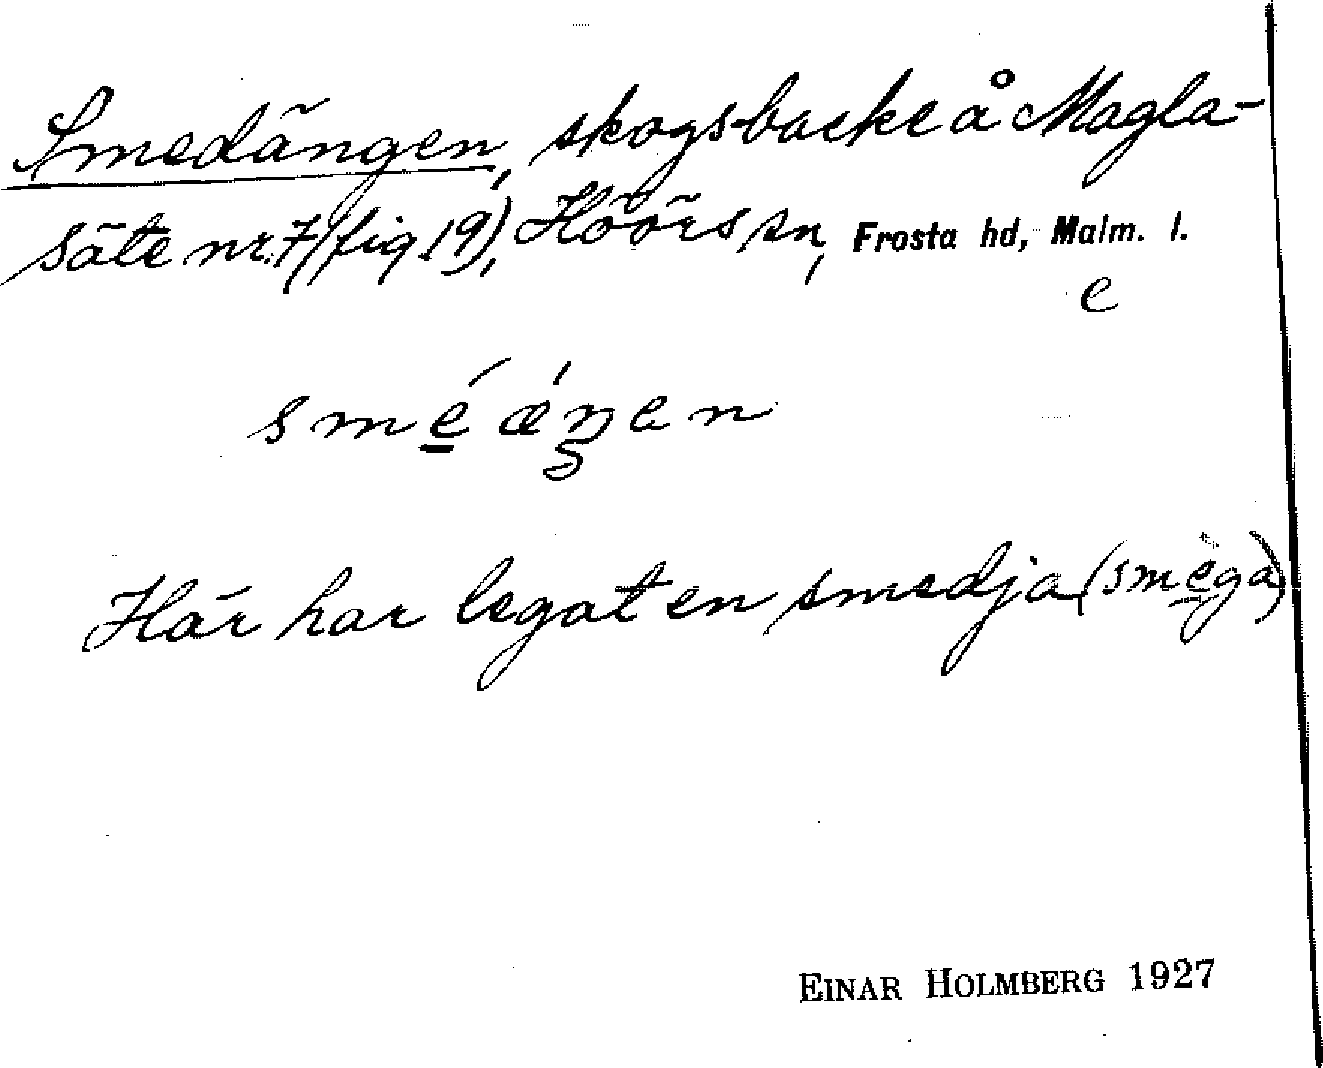 Smedängen, skogsbacke å Magla-
säte nr. 7 (fig 19), Höörs sn, Frosta hd, Malm. l.
e
sméǽŋen
Här har legat en smedja (smèga)
EINAR HOLMBERG 1927